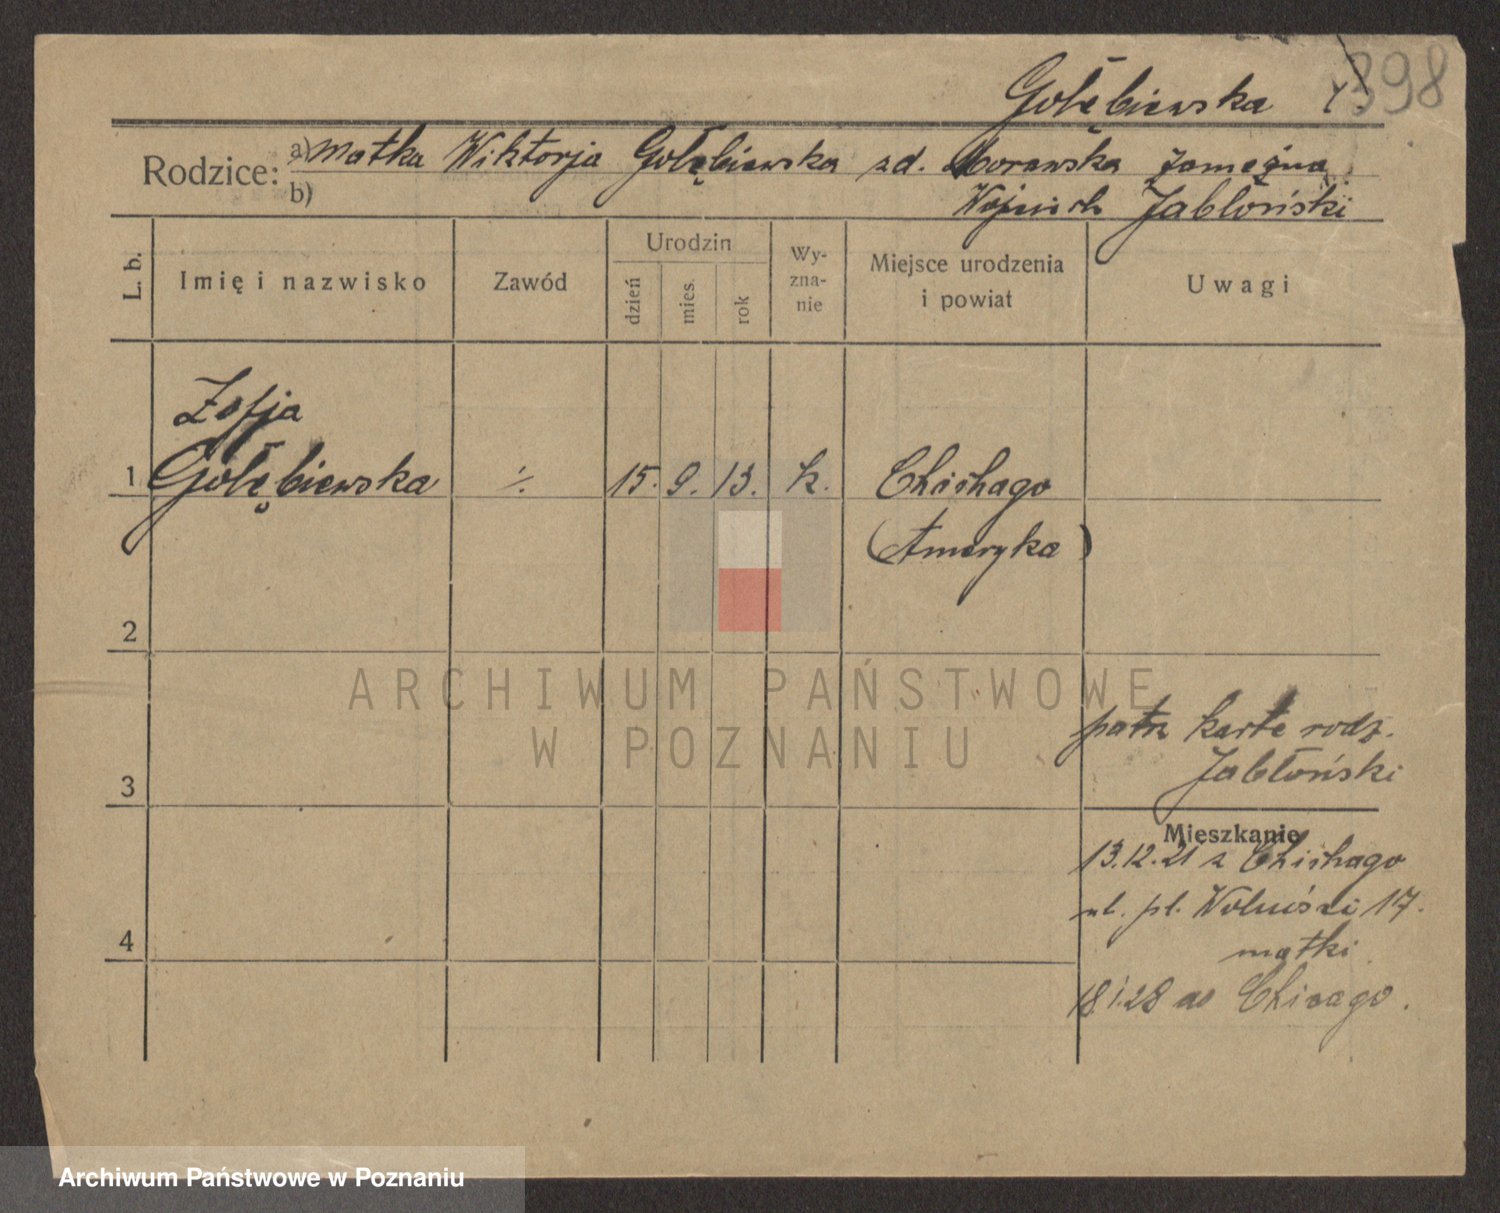 Gołębiewska 398
Rodzice: a) matka Wiktorja Gołębiewska zd. Morawska zamężna
b) Wojciech Jabłoński
L. b. Imię i nazwisko Zawód Urodzin dzień mies. rok Wy-zna-nie Miejsce urodzenia i powiat Uwagi
Zofja
1 Gołębiewska ·/· 15. 9. 13. k. Chichago
(Ameryka)
2
ARCHIWUM PAŃSTWOWE
W POZNANIU
patrz kartę rodz.
Jabłoński
3
Mieszkanie
13.12.21 z Chichago
ul. pl. Wolności 17.
matki
4
18.1.28 do Chicago.
Archiwum Państwowe w Poznaniu